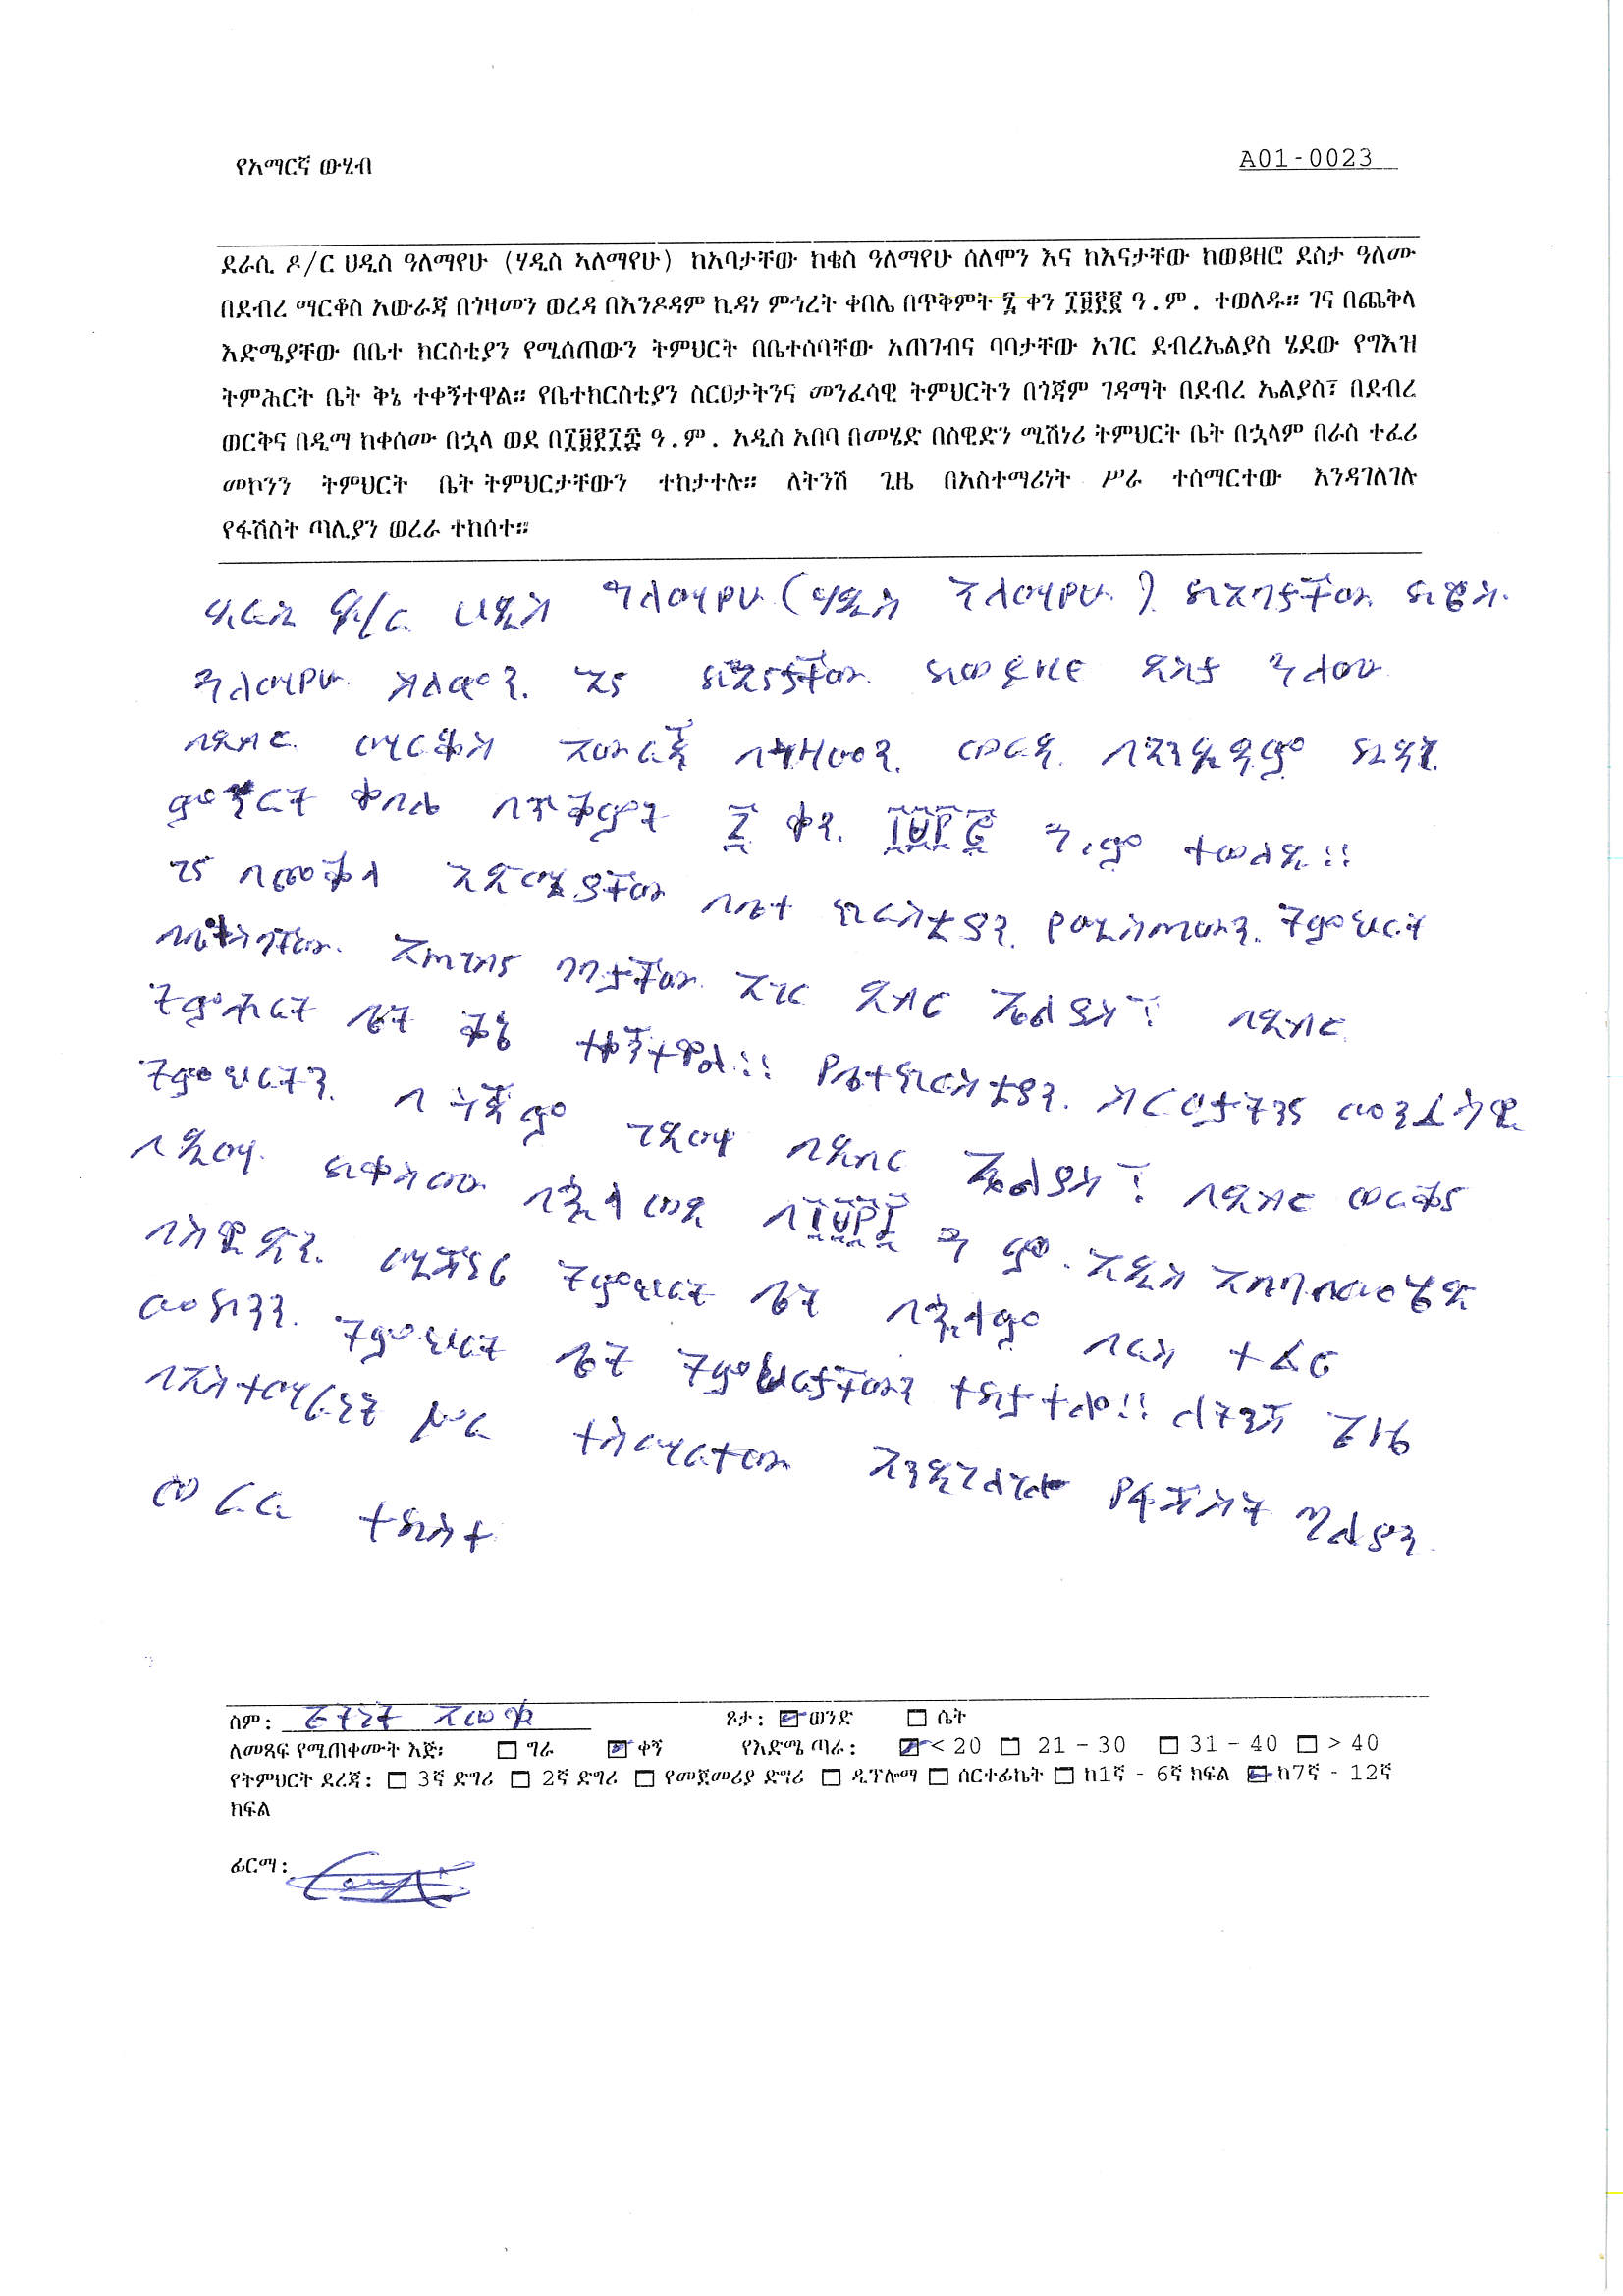 የአማርኛ ውሂብ
A01-0023
ደራሲ ዶ/ር ሀዲስ ዓለማየሁ (ሃዲስ ኣለማየሁ) ከአባታቸው ከቄስ ዓለማየሁ ሰለሞን እና ከእናታቸው ከወይዘሮ ደስታ ዓለሙ
በደብረ ማርቆስ አውራጃ በጎዛመን ወረዳ በእንዶዳም ኪዳነ ምኅረት ቀበሌ በጥቅምት ፯ ቀን ፲፱፻፪ ዓ.ም. ተወለዱ። ገና በጨቅላ
እድሜያቸው በቤተ ክርስቲያን የሚሰጠውን ትምህርት በቤተሰባቸው አጠገብና ባባታቸው አገር ደብረኤልያስ ሄደው የግእዝ
ትምሕርት ቤት ቅኔ ተቀኝተዋል። የቤተክርስቲያን ስርዐታትንና መንፈሳዊ ትምህርትን በጎጃም ገዳማት በደብረ ኤልያስ፣ በደብረ
ወርቅና በዲማ ከቀሰሙ በኋላ ወደ በ፲፱፻፲፰ ዓ.ም. አዲስ አበባ በመሄድ በስዊድን ሚሽነሪ ትምህርት ቤት በኋላም በራስ ተፈሪ
መኮንን ትምህርት ቤት ትምህርታቸውን ተከታተሉ። ለትንሽ ጊዜ በአስተማሪነት ሥራ ተሰማርተው እንዳገለገሉ
የፋሽስት ጣሊያን ወረራ ተከሰተ።
ደራሲ ዶ/ር ሀዲስ ዓለማየሁ (ሃዲስ ኣለማየሁ) ከአባታቸው ከቄስ
ዓለማየሁ ሰለሞን እና ከእናታቸው ከወይዘሮ ደስታ ዓለሙ
በደብረ ማርቆስ አውራጃ በጎዛመን ወረዳ በእንዶዳም ኪዳነ
ምኅረት ቀበሌ በጥቅምት ፯ ቀን ዓ.ም ተወለዱ።
ገና በጨቅላ እድሜያቸው በቤተ ክርስቲያን የሚሰጠውን ትምህርት
አጠገብና ባባታቸው አገር ደብረ ኤልያስ፣ በደብረ
ትምሕርት ቤት ቅኔ ተቀኝተዋል። የቤተክርስቲያን ስርዐታትንና መንፈሳዊ
ትምህርትን በጎጃም ገዳማ በደብረ ኤልያስ፣ በደብረ ወርቅና
በዲማ ከቀሰሙ በኋላ ወደ ዓ ም. አዲስ አበባ በመሄድ
በስዊድን ሚሽነሪ ትምህርት ቤት በኋላም በራስ ተፈሪ
መኮንን ትምህርት ቤት ትምህርታቸውን ተከታተሉ። ለትንሽ ጊዜ
በአስተማሪነት ሥራ ተሰማርተው እንዳገለገሉ የፋሽስት ጣልያን
ወረራ ተከሰተ
ስም: ጾታ: ወንድ ሴት
ለመጻፍ የሚጠቀሙት እጅ፡ ግራ ቀኝ የእድሜ ጣራ: < 20 21 - 30 31 - 40 > 40
የትምህርት ደረጃ: 3ኛ ድግሪ 2ኛ ድግሪ የመጀመሪያ ድግሪ ዲፕሎማ ሰርተፊኬት ከ1ኛ - 6ኛ ክፍል ከ7ኛ - 12ኛ
ክፍል
ፊርማ: